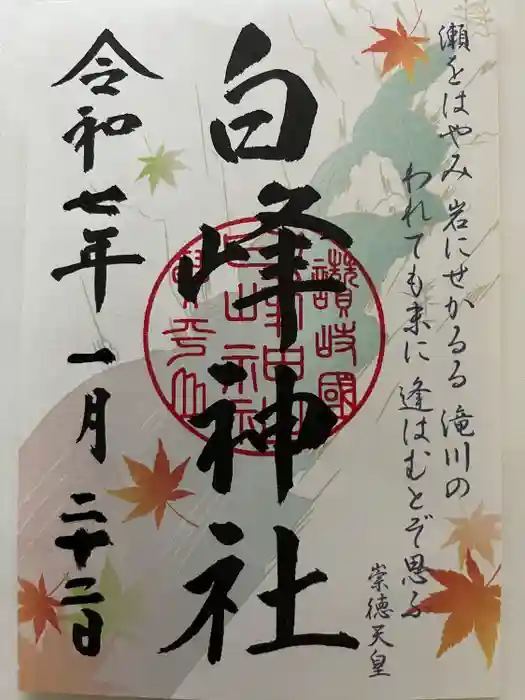 瀬をはやみ 岩にせかるる 滝川の
われても末に 逢はむとぞ思ふ
崇徳天皇
白峰神社
讃岐國
令和七年 一月 二十二日